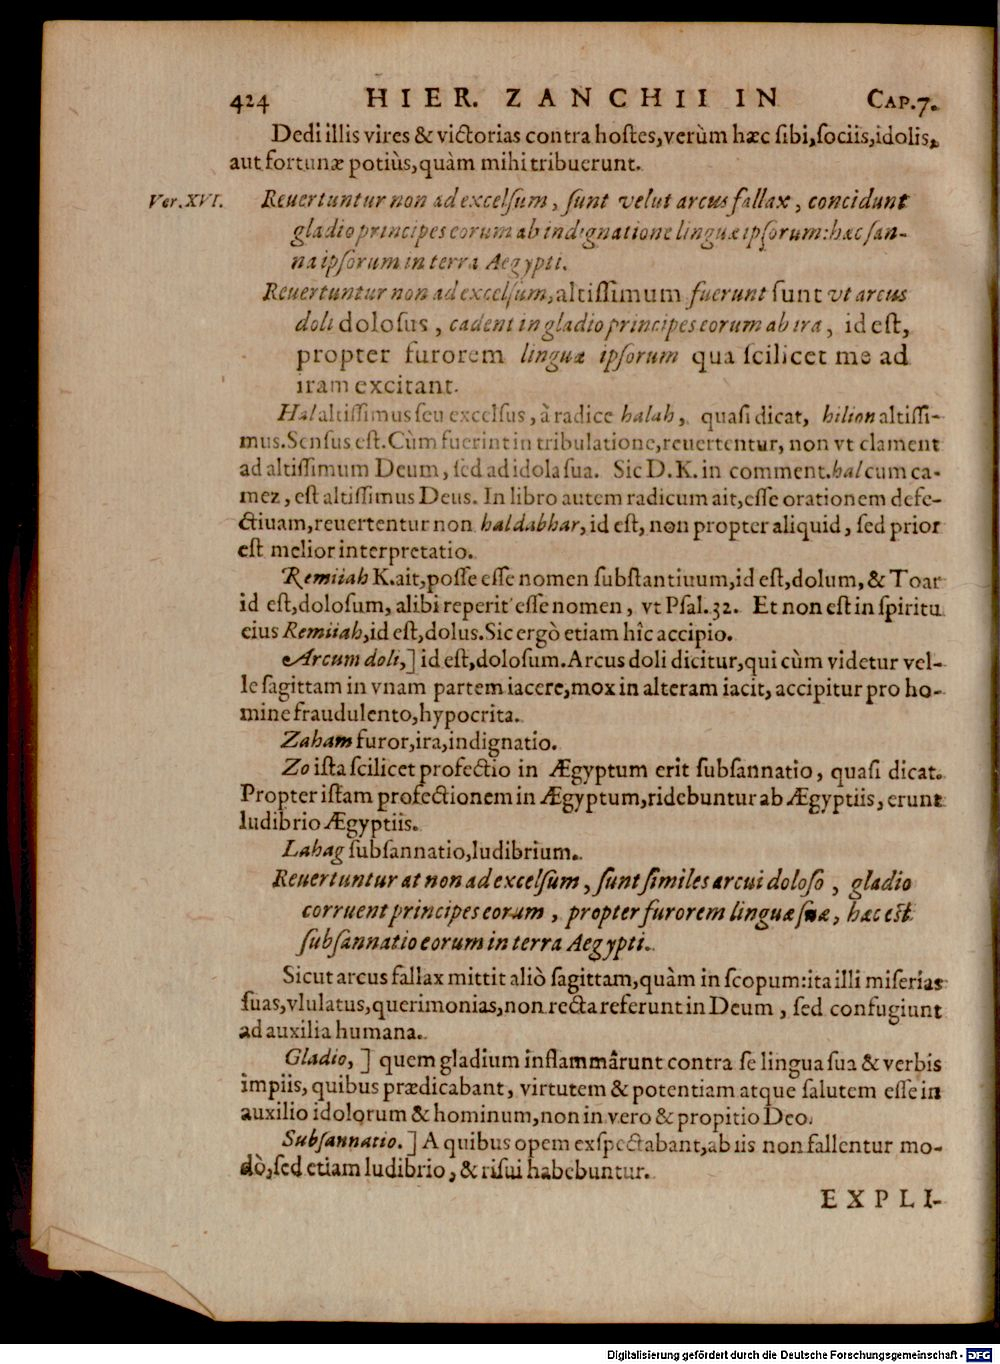 424 HIER. ZANCHII IN CAP.7.
Dedi illis vires & victorias contra hostes, verùm hæc sibi, sociis, idolis,
aut fortunæ potiùs, quàm mihi tribuerunt.
Ver.XVI. Reuertuntur non ad excelsum, sunt velut arcus fallax, concidunt
gladio principes eorum ab indignatione linguæ ipsorum: hæc san-
na ipsorum in terra Aegypti.
Reuertuntur non ad excelsum, altissimum fuerunt sunt vt arcus
doli dolosus, cadent in gladio principes eorum ab ira, id est,
propter furorem linguæ ipsorum qua scilicet me ad
iram excitant.
Hal altissimus seu excelsus, à radice halah, quasi dicat, hilion altissi-
mus. Sensus est. Cùm fuerint in tribulatione, reuertentur, non vt clament
ad altissimum Deum, sed ad idola sua. Sic D.K. in comment. hal cum ca-
mez, est altissimus Deus. In libro autem radicum ait, esse orationem defe-
ctiuam, reuertentur non haldabhar, id est, non propter aliquid, sed prior
est melior interpretatio.
Remiiah K. ait, posse esse nomen substantiuum, id est, dolum, & Toar
id est, dolosum, alibi reperit esse nomen, vt Psal.32. Et non est in spiritu
eius Remiiah, id est, dolus. Sic ergò etiam hîc accipio.
Arcum doli,] id est, dolosum. Arcus doli dicitur, qui cùm videtur vel-
le sagittam in vnam partem iacere, mox in alteram iacit, accipitur pro ho-
mine fraudulento, hypocrita.
Zaham furor, ira, indignatio.
Zo ista scilicet profectio in Ægyptum erit subsannatio, quasi dicat.
Propter istam profectionem in Ægyptum, ridebuntur ab Ægyptiis, erunt
ludibrio Ægyptiis.
Lahag subsannatio, ludibrium.
Reuertuntur at non ad excelsum, sunt similes arcui doloso, gladio
corruent principes eorum, propter furorem linguæ suæ, hæc est
subsannatio eorum in terra Aegypti.
Sicut arcus fallax mittit aliò sagittam, quàm in scopum: ita illi miserias
suas, vlulatus, querimonias, non recta referunt in Deum, sed confugiunt
ad auxilia humana.
Gladio,] quem gladium inflammârunt contra se lingua sua & verbis
impiis, quibus prædicabant, virtutem & potentiam atque salutem esse in
auxilio idolorum & hominum, non in vero & propitio Deo.
Subsannatio.] A quibus opem exspectabant, ab iis non fallentur mo-
dò, sed etiam ludibrio, & risui habebuntur.
EXPLI-
Digitalisierung gefördert durch die Deutsche Forschungsgemeinschaft - DFG